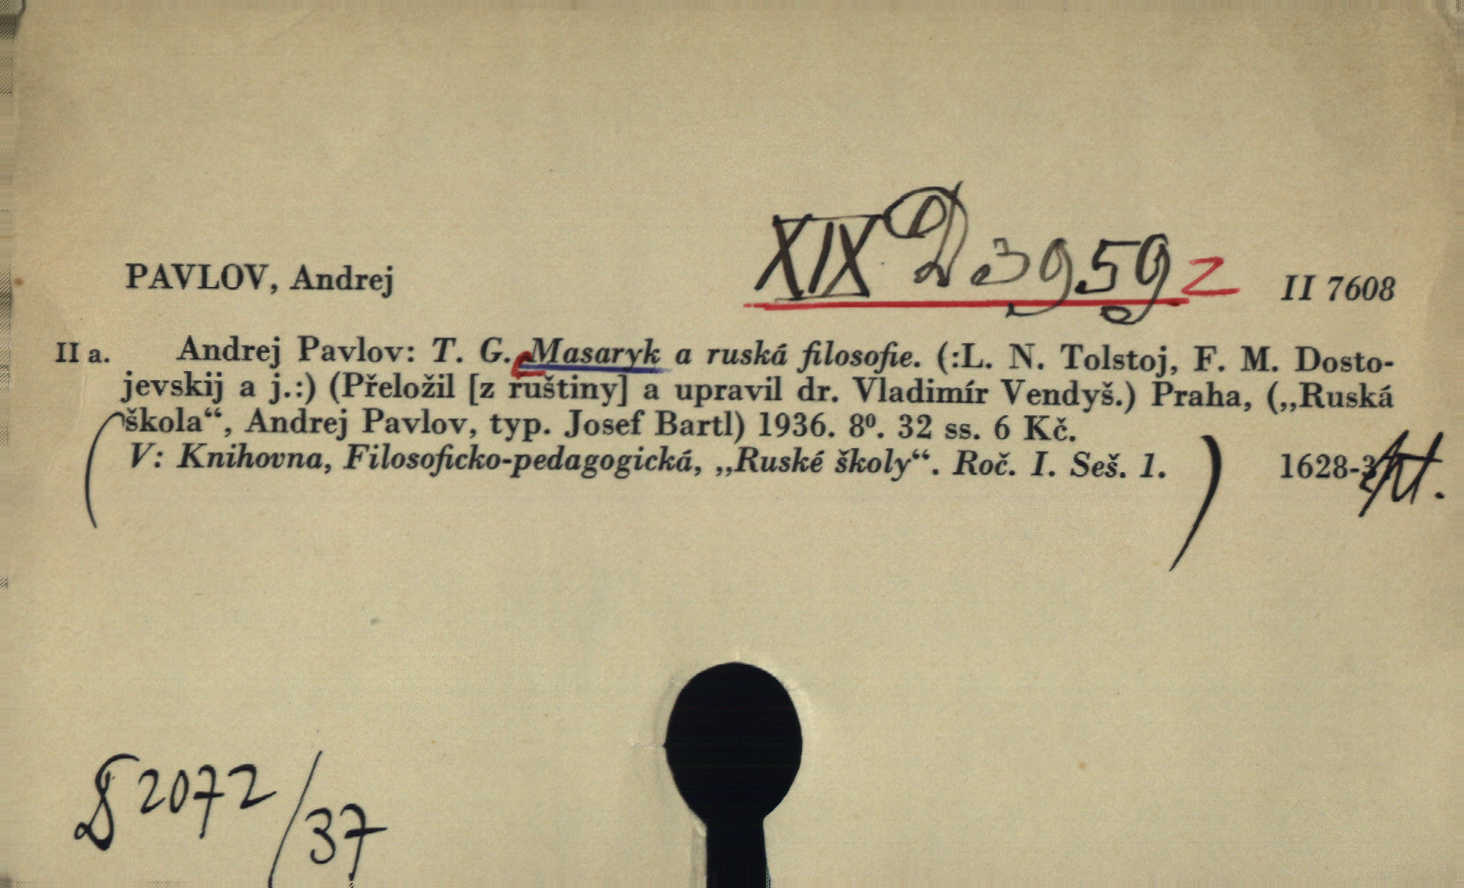 XIX D 3959 z
PAVLOV, Andrej
II 7608
II a. Andrej Pavlov: T. G. Masaryk a ruská filosofie. (:L. N. Tolstoj, F. M. Dosto-
jevskij a j.:) (Přeložil [z ruštiny] a upravil dr. Vladimír Vendyš.) Praha, („Ruská
škola“, Andrej Pavlov, typ. Josef Bartl) 1936. 8⁰. 32 ss. 6 Kč.
V: Knihovna, Filosoficko-pedagogická, „Ruské školy“. Roč. I. Seš. 1.
1628-3
§ 2072/37